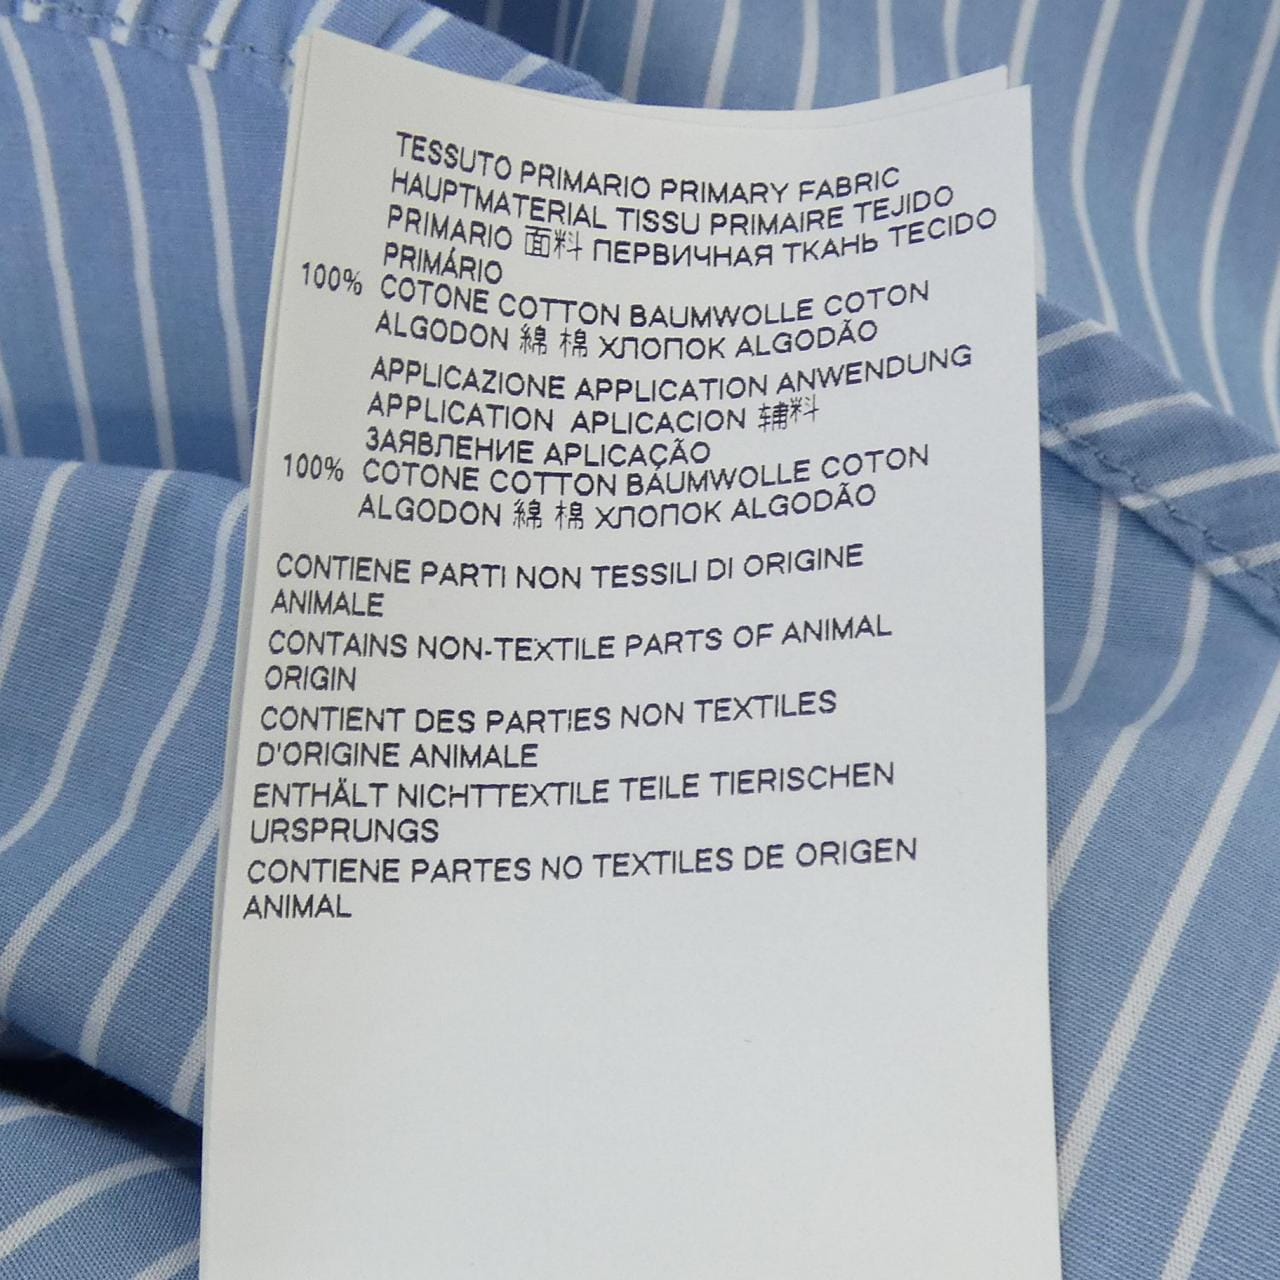 TESSUTO PRIMARIO PRIMARY FABRIC
HAUPTMATERIAL TISSU PRIMAIRE TEJIDO
PRIMARIO 面料 ПЕРВИЧНАЯ ТКАНЬ TECIDO
PRIMÁRIO
100% COTONE COTTON BAUMWOLLE COTON
ALGODON 綿 棉 ХЛОПОК ALGODÃO
APPLICAZIONE APPLICATION ANWENDUNG
APPLICATION APLICACION 辅料
ЗАЯВЛЕНИЕ APLICAÇÃO
100% COTONE COTTON BAUMWOLLE COTON
ALGODON 綿 棉 ХЛОПОК ALGODÃO
CONTIENE PARTI NON TESSILI DI ORIGINE
ANIMALE
CONTAINS NON-TEXTILE PARTS OF ANIMAL
ORIGIN
CONTIENT DES PARTIES NON TEXTILES
D'ORIGINE ANIMALE
ENTHÄLT NICHTTEXTILE TEILE TIERISCHEN
URSPRUNGS
CONTIENE PARTES NO TEXTILES DE ORIGEN
ANIMAL